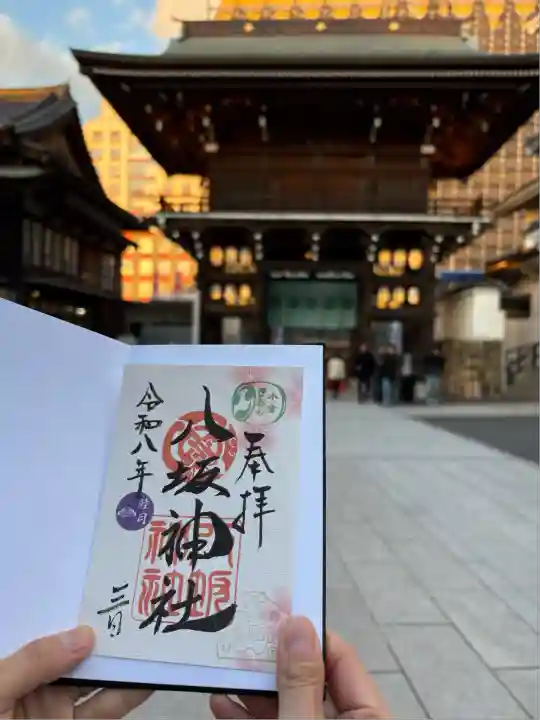 小倉
奉拝
八坂神社
八坂
神社
令和八年
睦月
三日